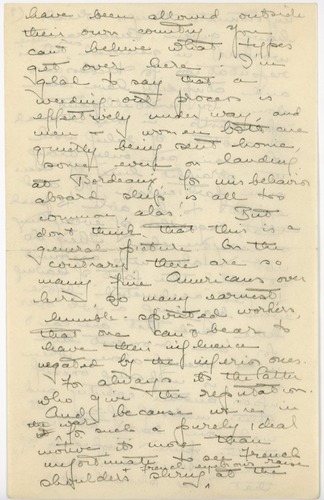 have been allowed outside
their own country. You
can't believe what types
get over here. I'm
glad to say that a
weeding-out process is
effectively under way, and
men & women both are
quietly being sent home,
some even on landing
at Bordeaux, for misbehavior
aboard ship is all too
common, alas. But
don't think that this is a
general picture. On the
contrary there are so
many fine Americans over
here, so many earnest
humble-spirited workers,
that one can't bear to
have their influence
negated by the inferior ones.
For always it's the latter
who give the reputation.
And because we're in
the war for such a purely ideal
motive it's more than
unfortunate to see French
French eyebrows raise
shoulders shrug at the